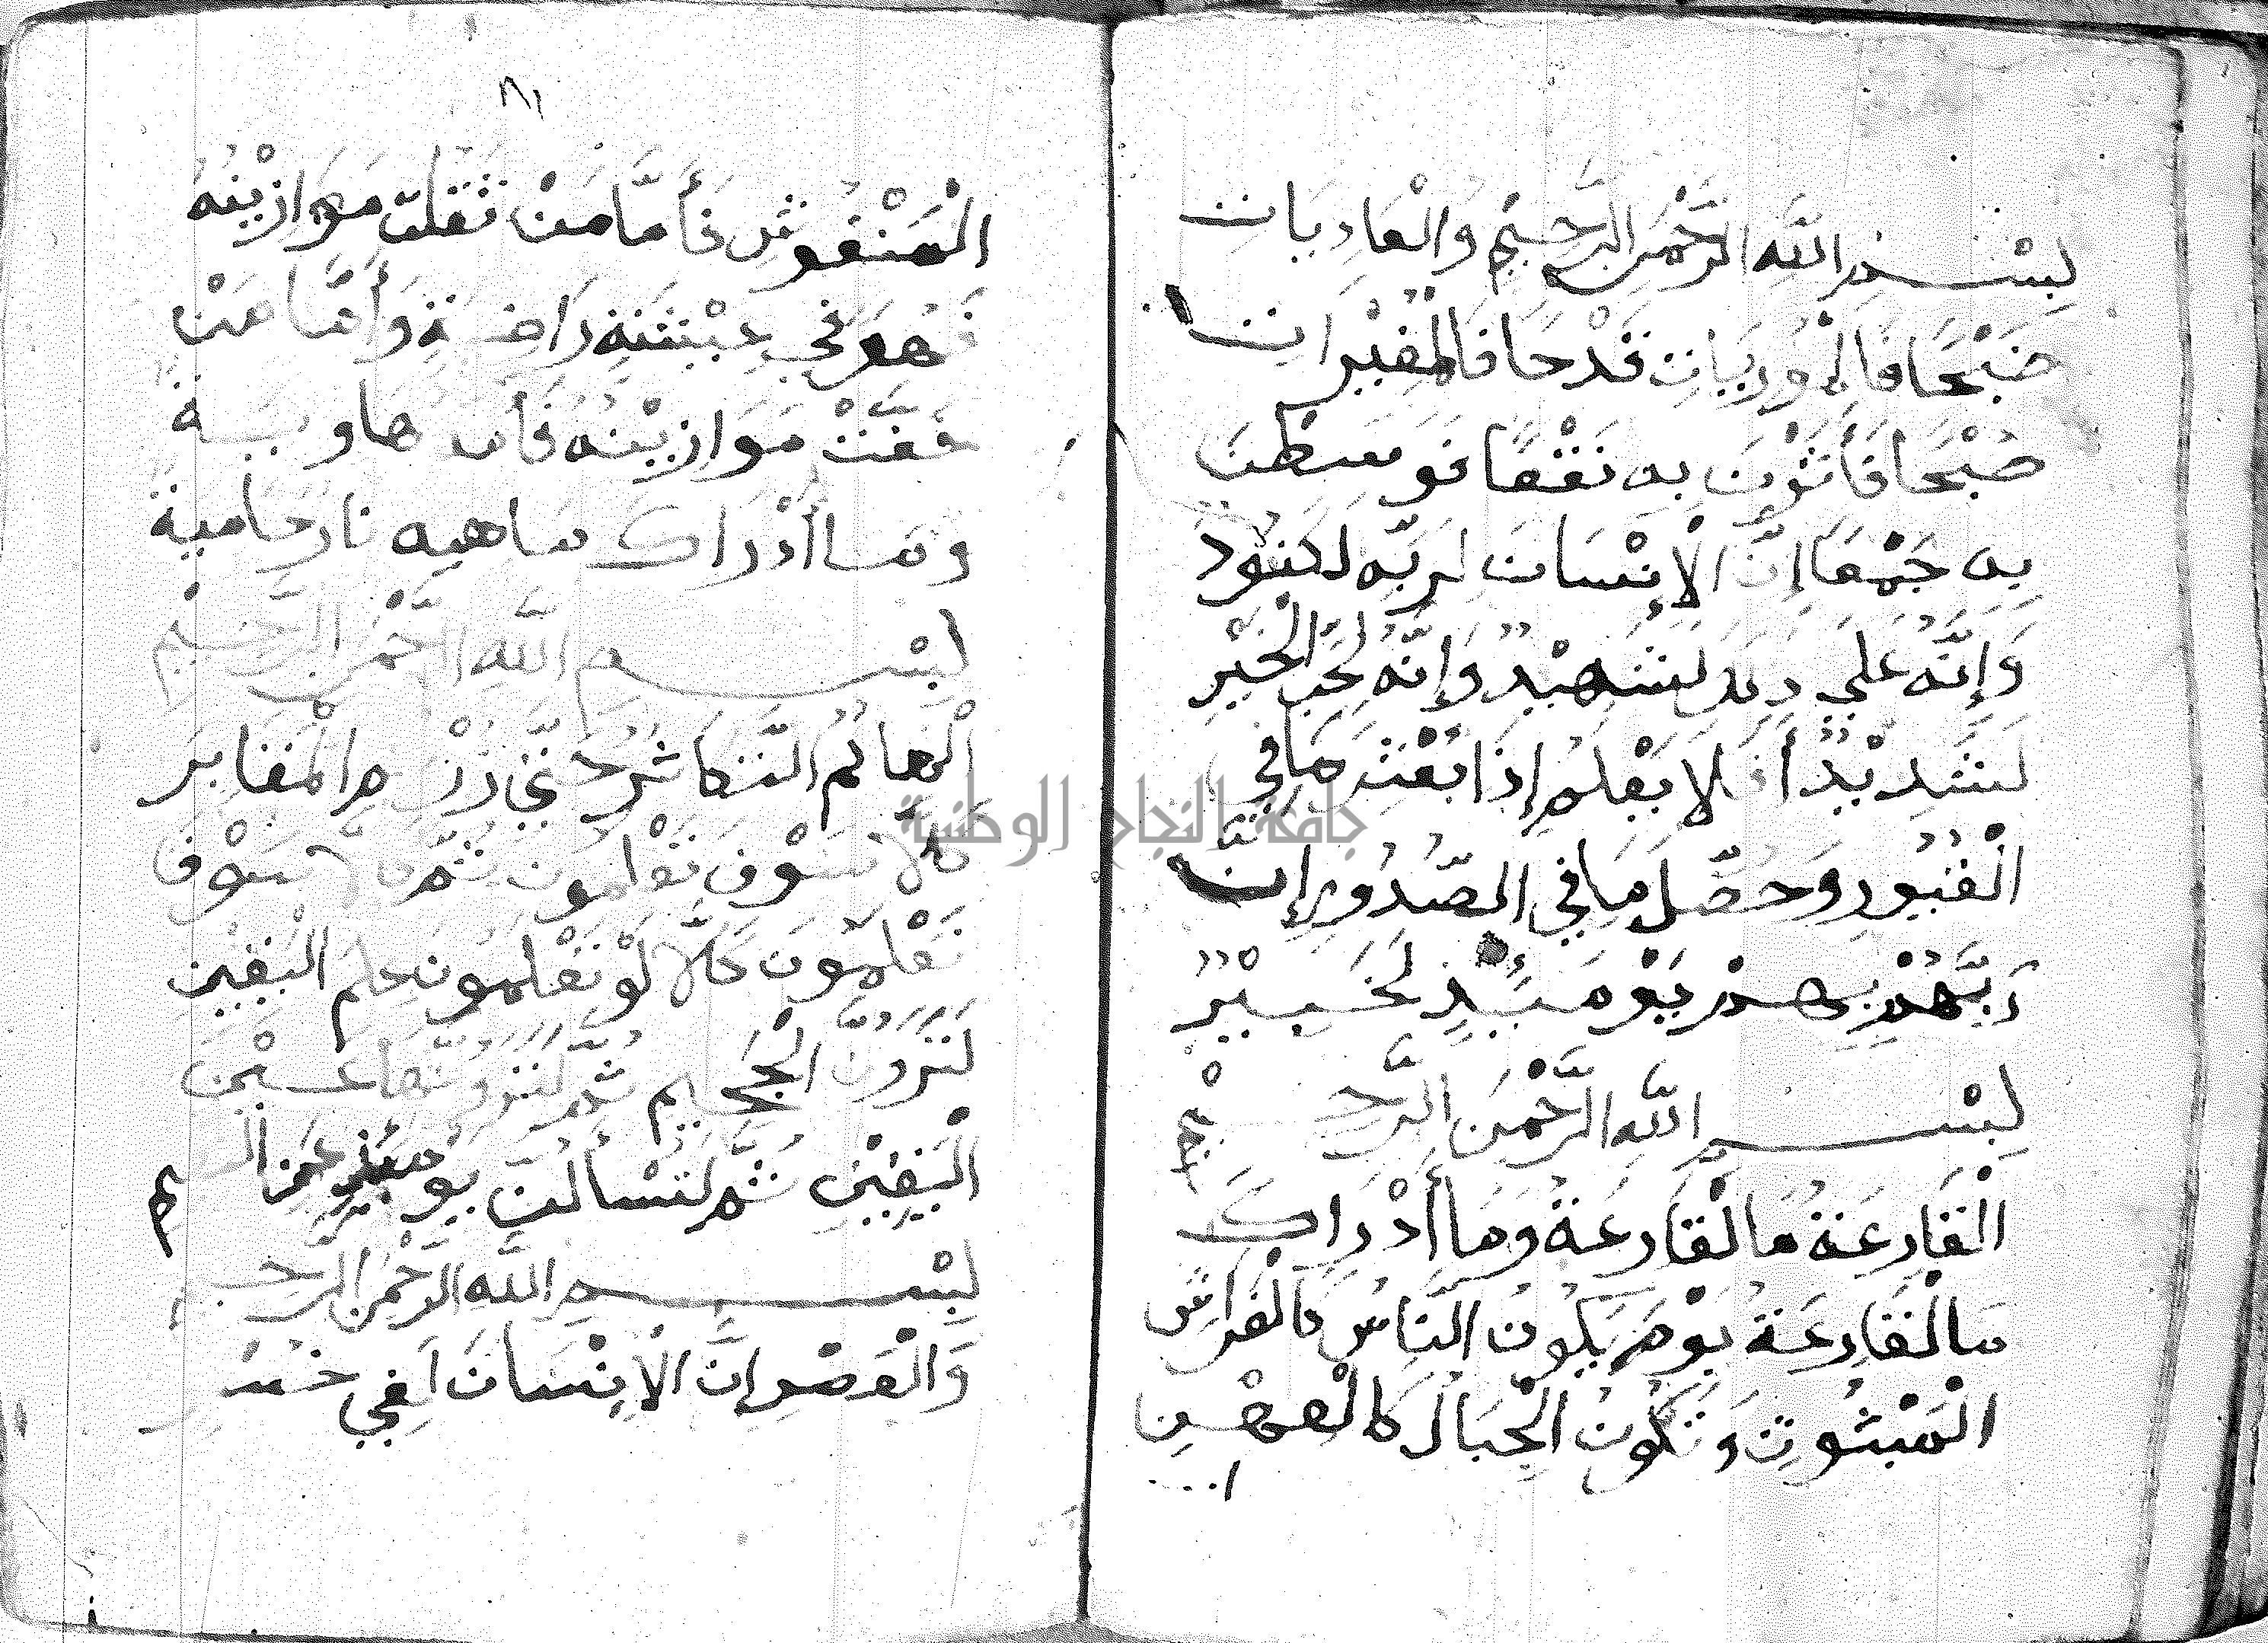 بِسْمِ اللَّهِ الرَّحْمَنِ الرَّحِيمِ وَالْعَادِيَات
ضَبْحًا فَالْمُورِيَاتِ قَدْحًا فَالْمُغِيْرَات
صُبْحًا فَأَثَرْنَ بِهِ نَقْعًا فَوَسَطْنَ
بِهِ جَمْعًا إِنَّ الْإِنْسَانَ لِرَبِّهِ لَكَنُودٌ
وَإِنَّهُ عَلَى ذَلِكَ لَشَهِيْدٌ وَإِنَّهُ لِحُبِّ الْخَيْرِ
لَشَدِيْدٌ أَفَلَا يَعْلَمُ إِذَا بُعْثِرَ مَا فِي
الْقُبُورِ وَحُصِّلَ مَا فِي الصُّدُورِ إِنَّ
رَبَّهُمْ بِهِمْ يَوْمَئِذٍ لَخَبِيْرٌ
بِسْمِ اللَّهِ الرَّحْمَنِ الرَّحِيْم
الْقَارِعَةُ مَا الْقَارِعَةُ وَمَا أَدْرَاكَ
مَا الْقَارِعَةُ يَوْمَ يَكُونُ النَّاسُ كَالْفَرَاشِ
الْمَبْثُوثِ وَتَكُونُ الْجِبَالُ كَالْعِهْنِ
٨١
الْمَنْفُوشِ فَأَمَّا مَنْ ثَقُلَتْ مَوَازِيْنُهُ
فَهُوَ فِي عِيْشَةٍ رَاضِيَةٍ وَأَمَّا مَنْ
خَفَّتْ مَوَازِيْنُهُ فَأُمُّهُ هَاوِيَةٌ
وَمَا أَدْرَاكَ مَاهِيَه نَارٌ حَامِيَةٌ
بِسْمِ اللَّهِ الرَّحْمَنِ الرَّحِيْمِ
أَلْهَاكُمُ التَّكَاثُرُ حَتَّى زُرْتُمُ الْمَقَابِرَ
كَلَّا سَوْفَ تَعْلَمُونَ ثُمَّ كَلَّا سَوْفَ
تَعْلَمُونَ كَلَّا لَوْ تَعْلَمُونَ عِلْمَ الْيَقِيْنِ
لَتَرَوُنَّ الْجَحِيمَ ثُمَّ لَتَرَوُنَّهَا عَيْنَ
الْيَقِيْنِ ثُمَّ لَتُسْأَلُنَّ يَوْمَئِذٍ عَنِ النعيم
بِسْمِ اللَّهِ الرَّحْمَنِ الرَّحِيم
وَالْعَصْرِ إِنَّ الْإِنْسَانَ لَفِي خُسْرٍ
جامعة النجاح الوطنية